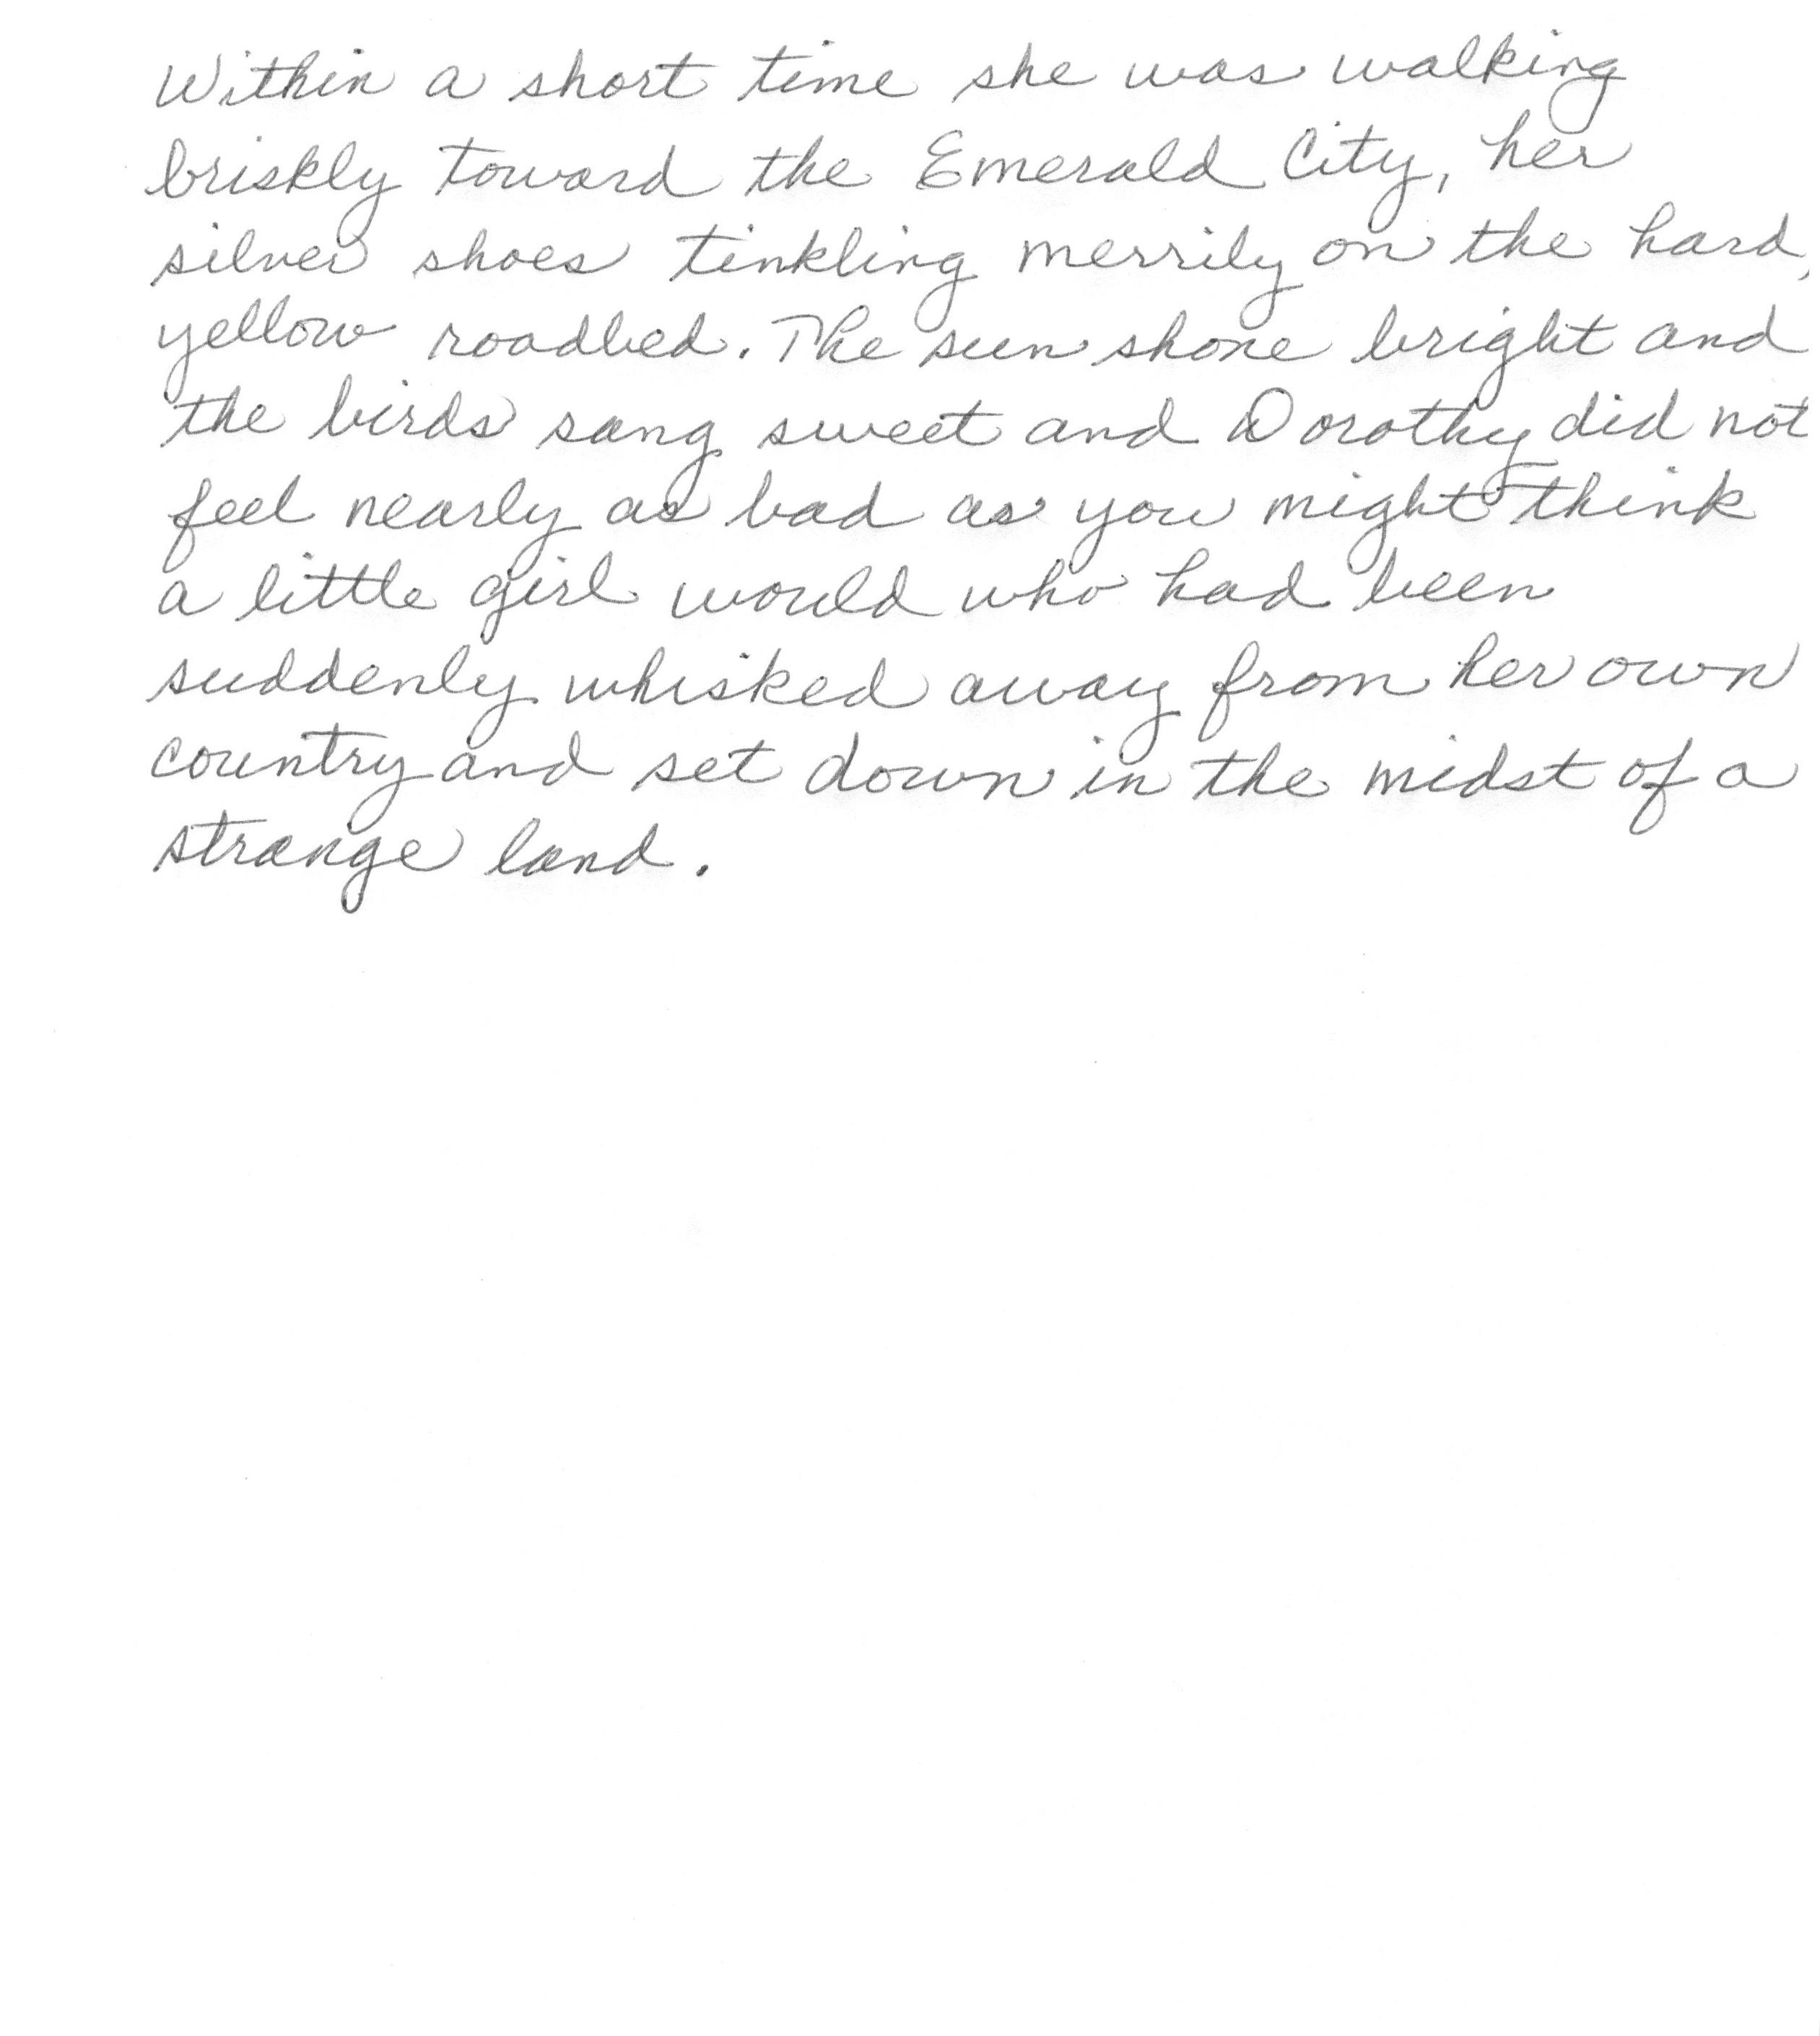 Within a short time she was walking
briskly toward the Emerald City, her
silver shoes tinkling merrily on the hard,
yellow roadbed. The sun shone bright and
the birds sang sweet and Dorothy did not
feel nearly as bad as you might think
a little girl would who had been
suddenly whisked away from her own
country and set down in the midst of a
strange land.